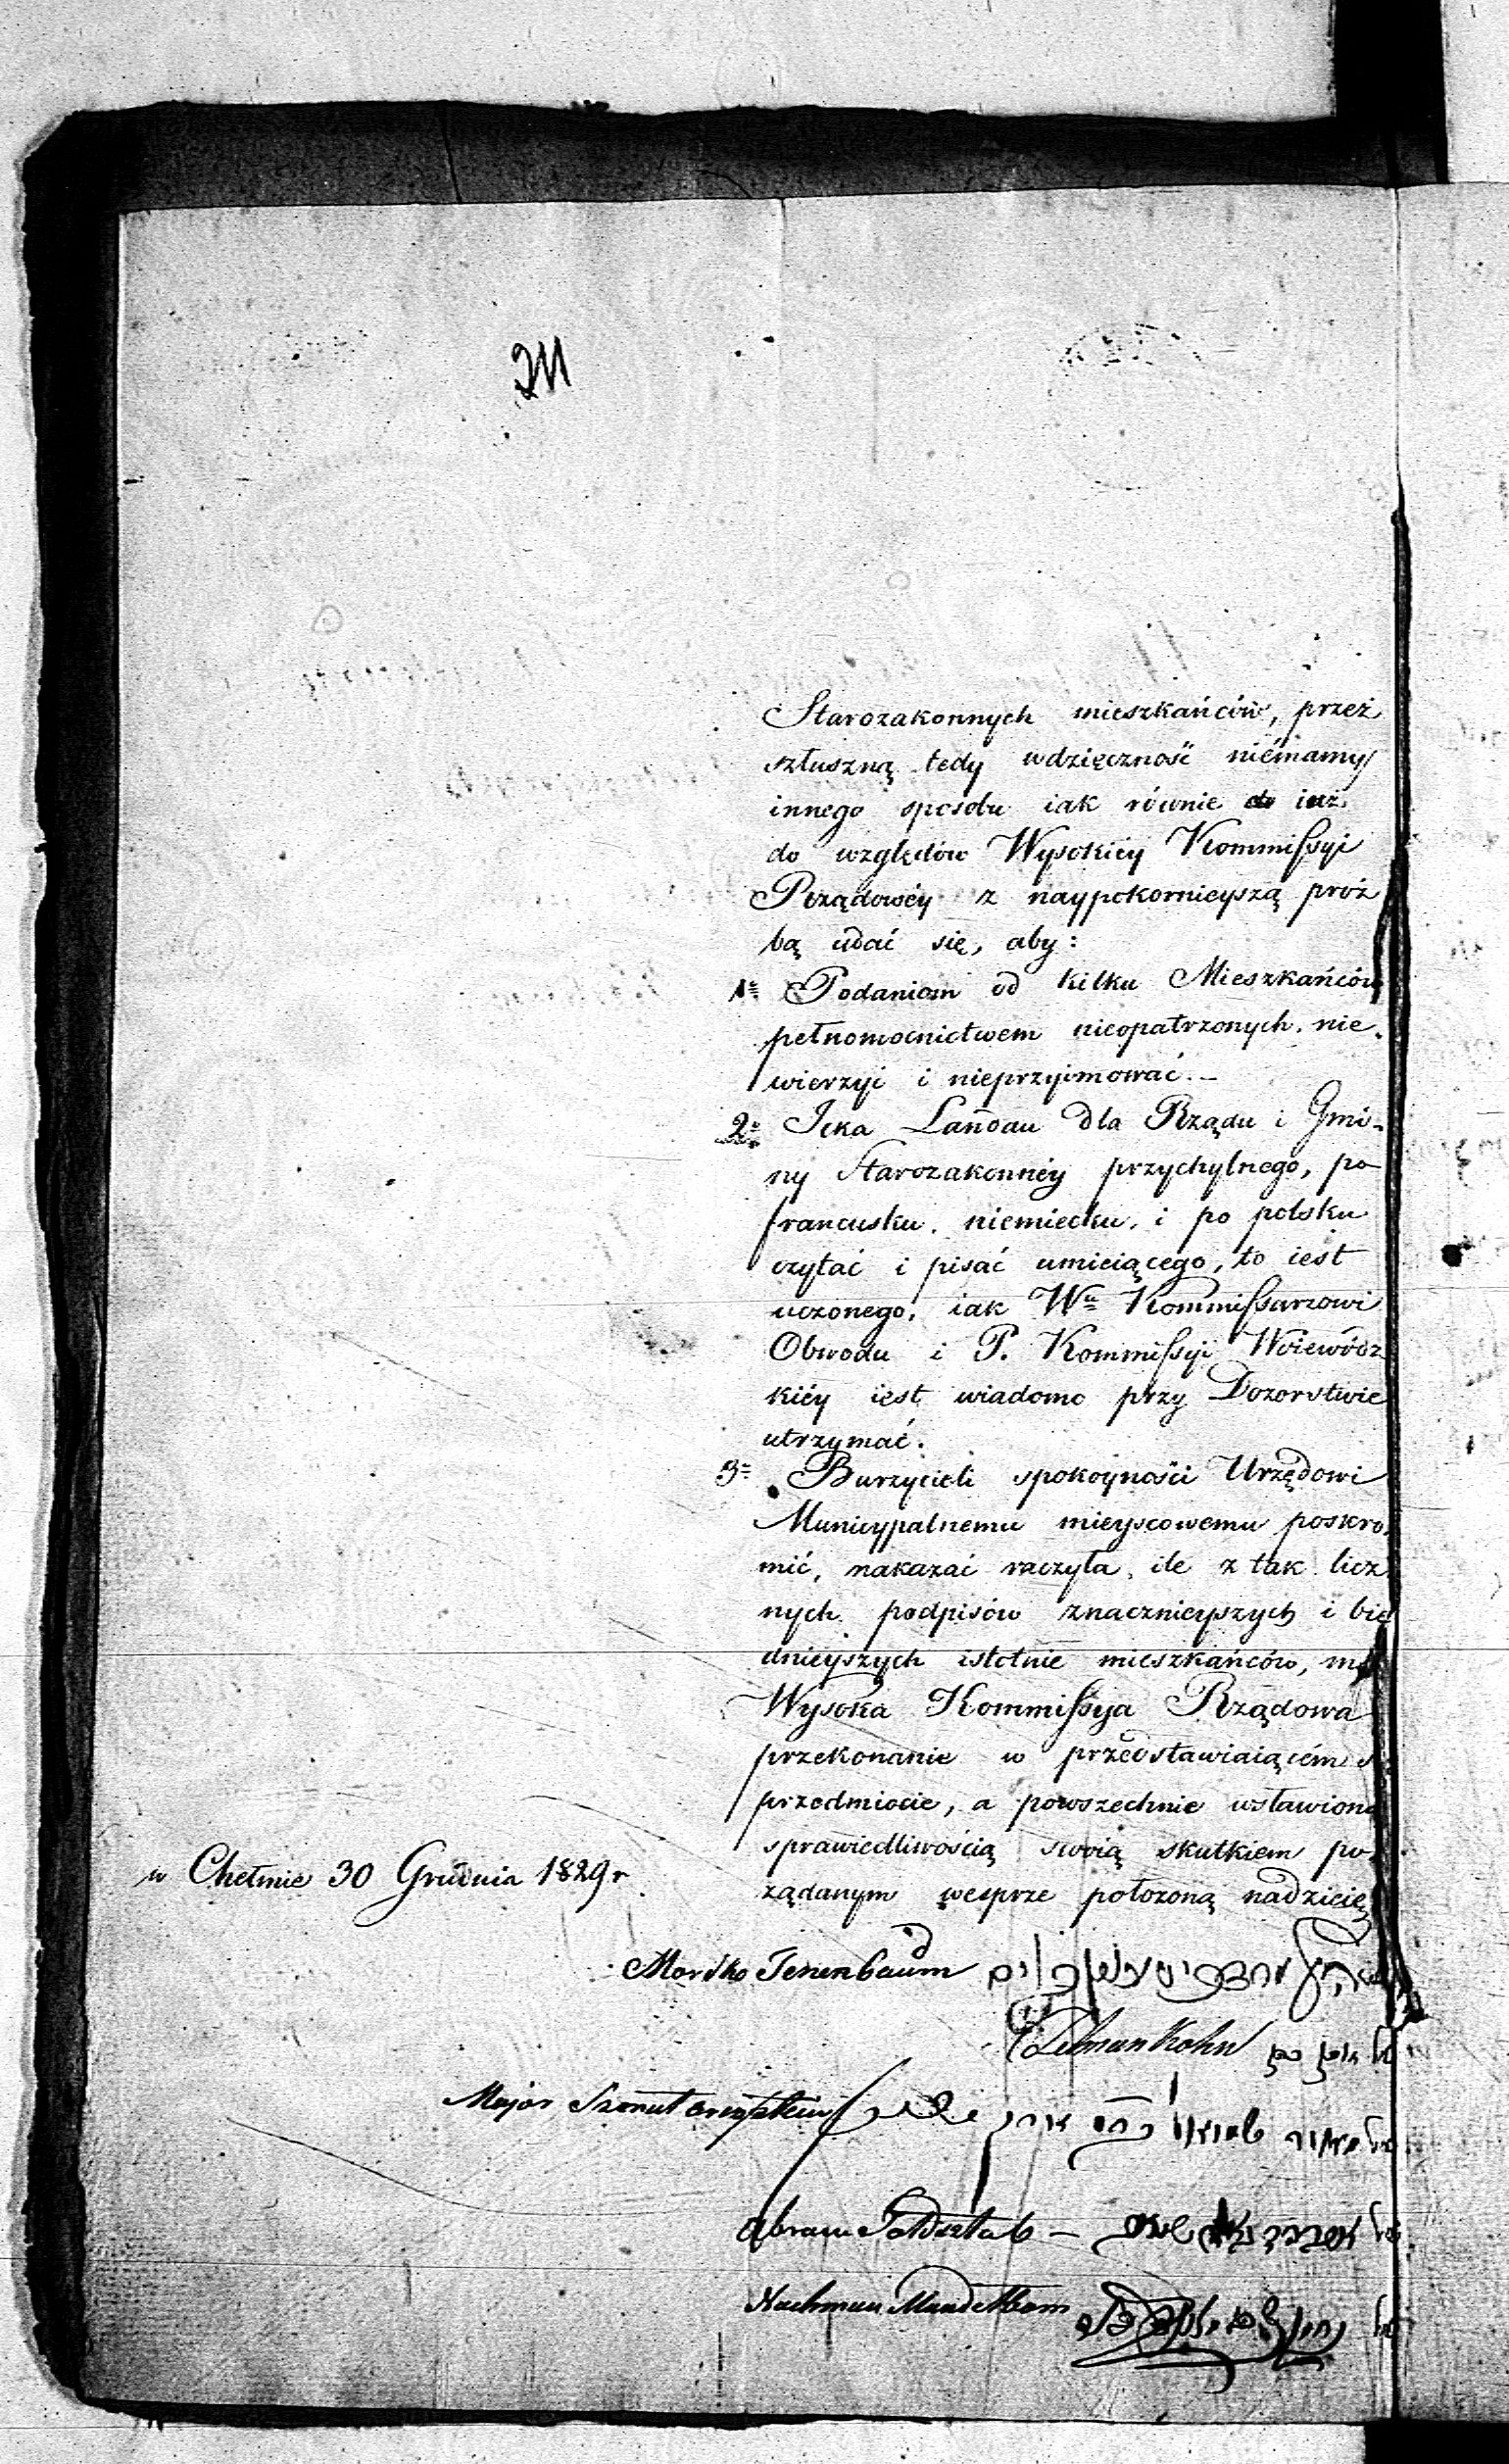 211
Starozakonnych mieszkańców, przez
szłuszną tedy wdzięczność niémamy
innego sposobu iak równie do iuż
do względów Wysokiéy Kommissyi
Rządowéy z naypokornieyszą proź
bą udać się, aby:
1e Podaniom od kilku Mieszkańców
pełnomocnictwem nieopatrzonych, nie
wierzyi i nieprzyimować.
2e Icka Landau dla Rządu i Gmi-
ny Starozakonnéy przychylnego, po
francusku, niemiecku, i po polsku
czytać i pisać umieiącego, to iest
uczonego, iak Wu Kommissarzowi
Obwodu i P. Kommissyi Woiewódz
kiéy iest wiadomo przy Dozorstwie
utrzymać.
3e Burzycieli spokoyności Urzędowi
Municypalnemu mieyscowemu poskro
mić, nakazać raczyła, ile z tak licz
nych podpisów znacznieyszych i bie
dnieyszych istotnie mieszkańców, ma
Wysoka Kommissyia Rządowa
przekonanie w przedstawiaiącém
przedmiocie, a powszechnie wsławioną
sprawiedliwością swoią skutkiem po
żądanym wesprze położoną nadzieię
w Chełmie 30 Grudnia 1829 r
Mordko Tenenbaum
Zelman Kohn
Major Szmul
Abram Goldsztab –
Nachman Mandelbom